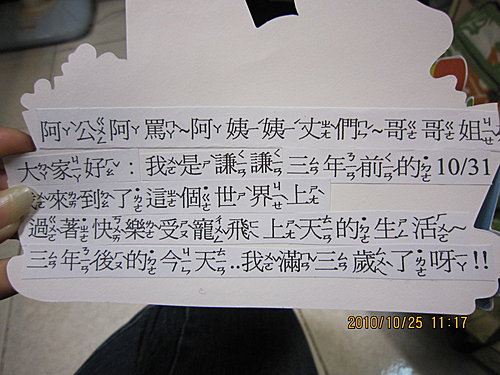 阿公阿罵~阿姨姨丈們~哥哥姐
大家好:我是謙謙三年前的10/31
來到了這個世界上
過著快樂受寵飛上天的生活~
三年後的今天..我滿三歲了呀!!
2010/10/25 11:17